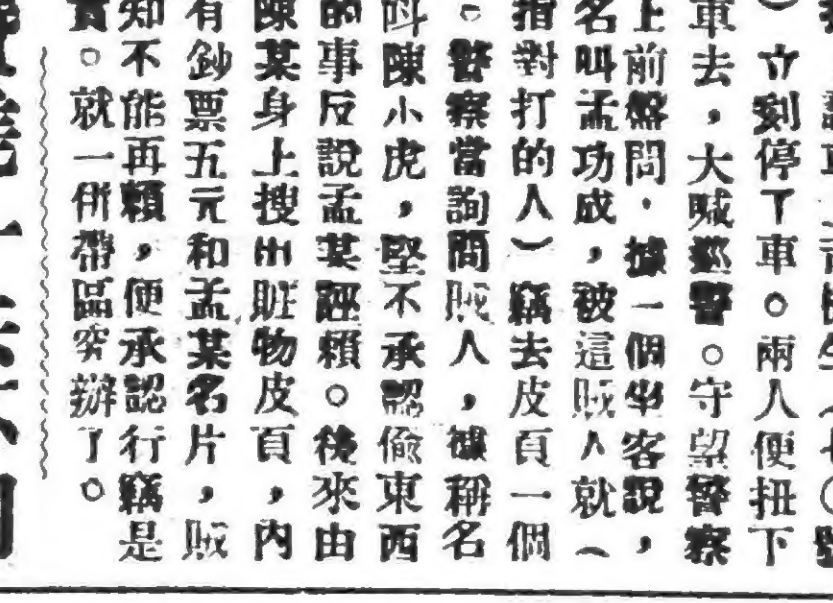 ）立刻停了車。兩人便扭下
車去，大喊巡警。守望警察
上前盤問，據一個坐客說，
名叫孟功成，被這賊人就（
指對打的人）竊去皮頁一個
。警察當詢問賊人，據稱名
叫陳小虎，堅不承認偷東西
的事反說孟某誣賴。後來由
陳某身上搜出贓物皮頁，內
有鈔票五元和孟某名片，賊
知不能再賴，便承認行竊是
實。就一併帶區究辦了。